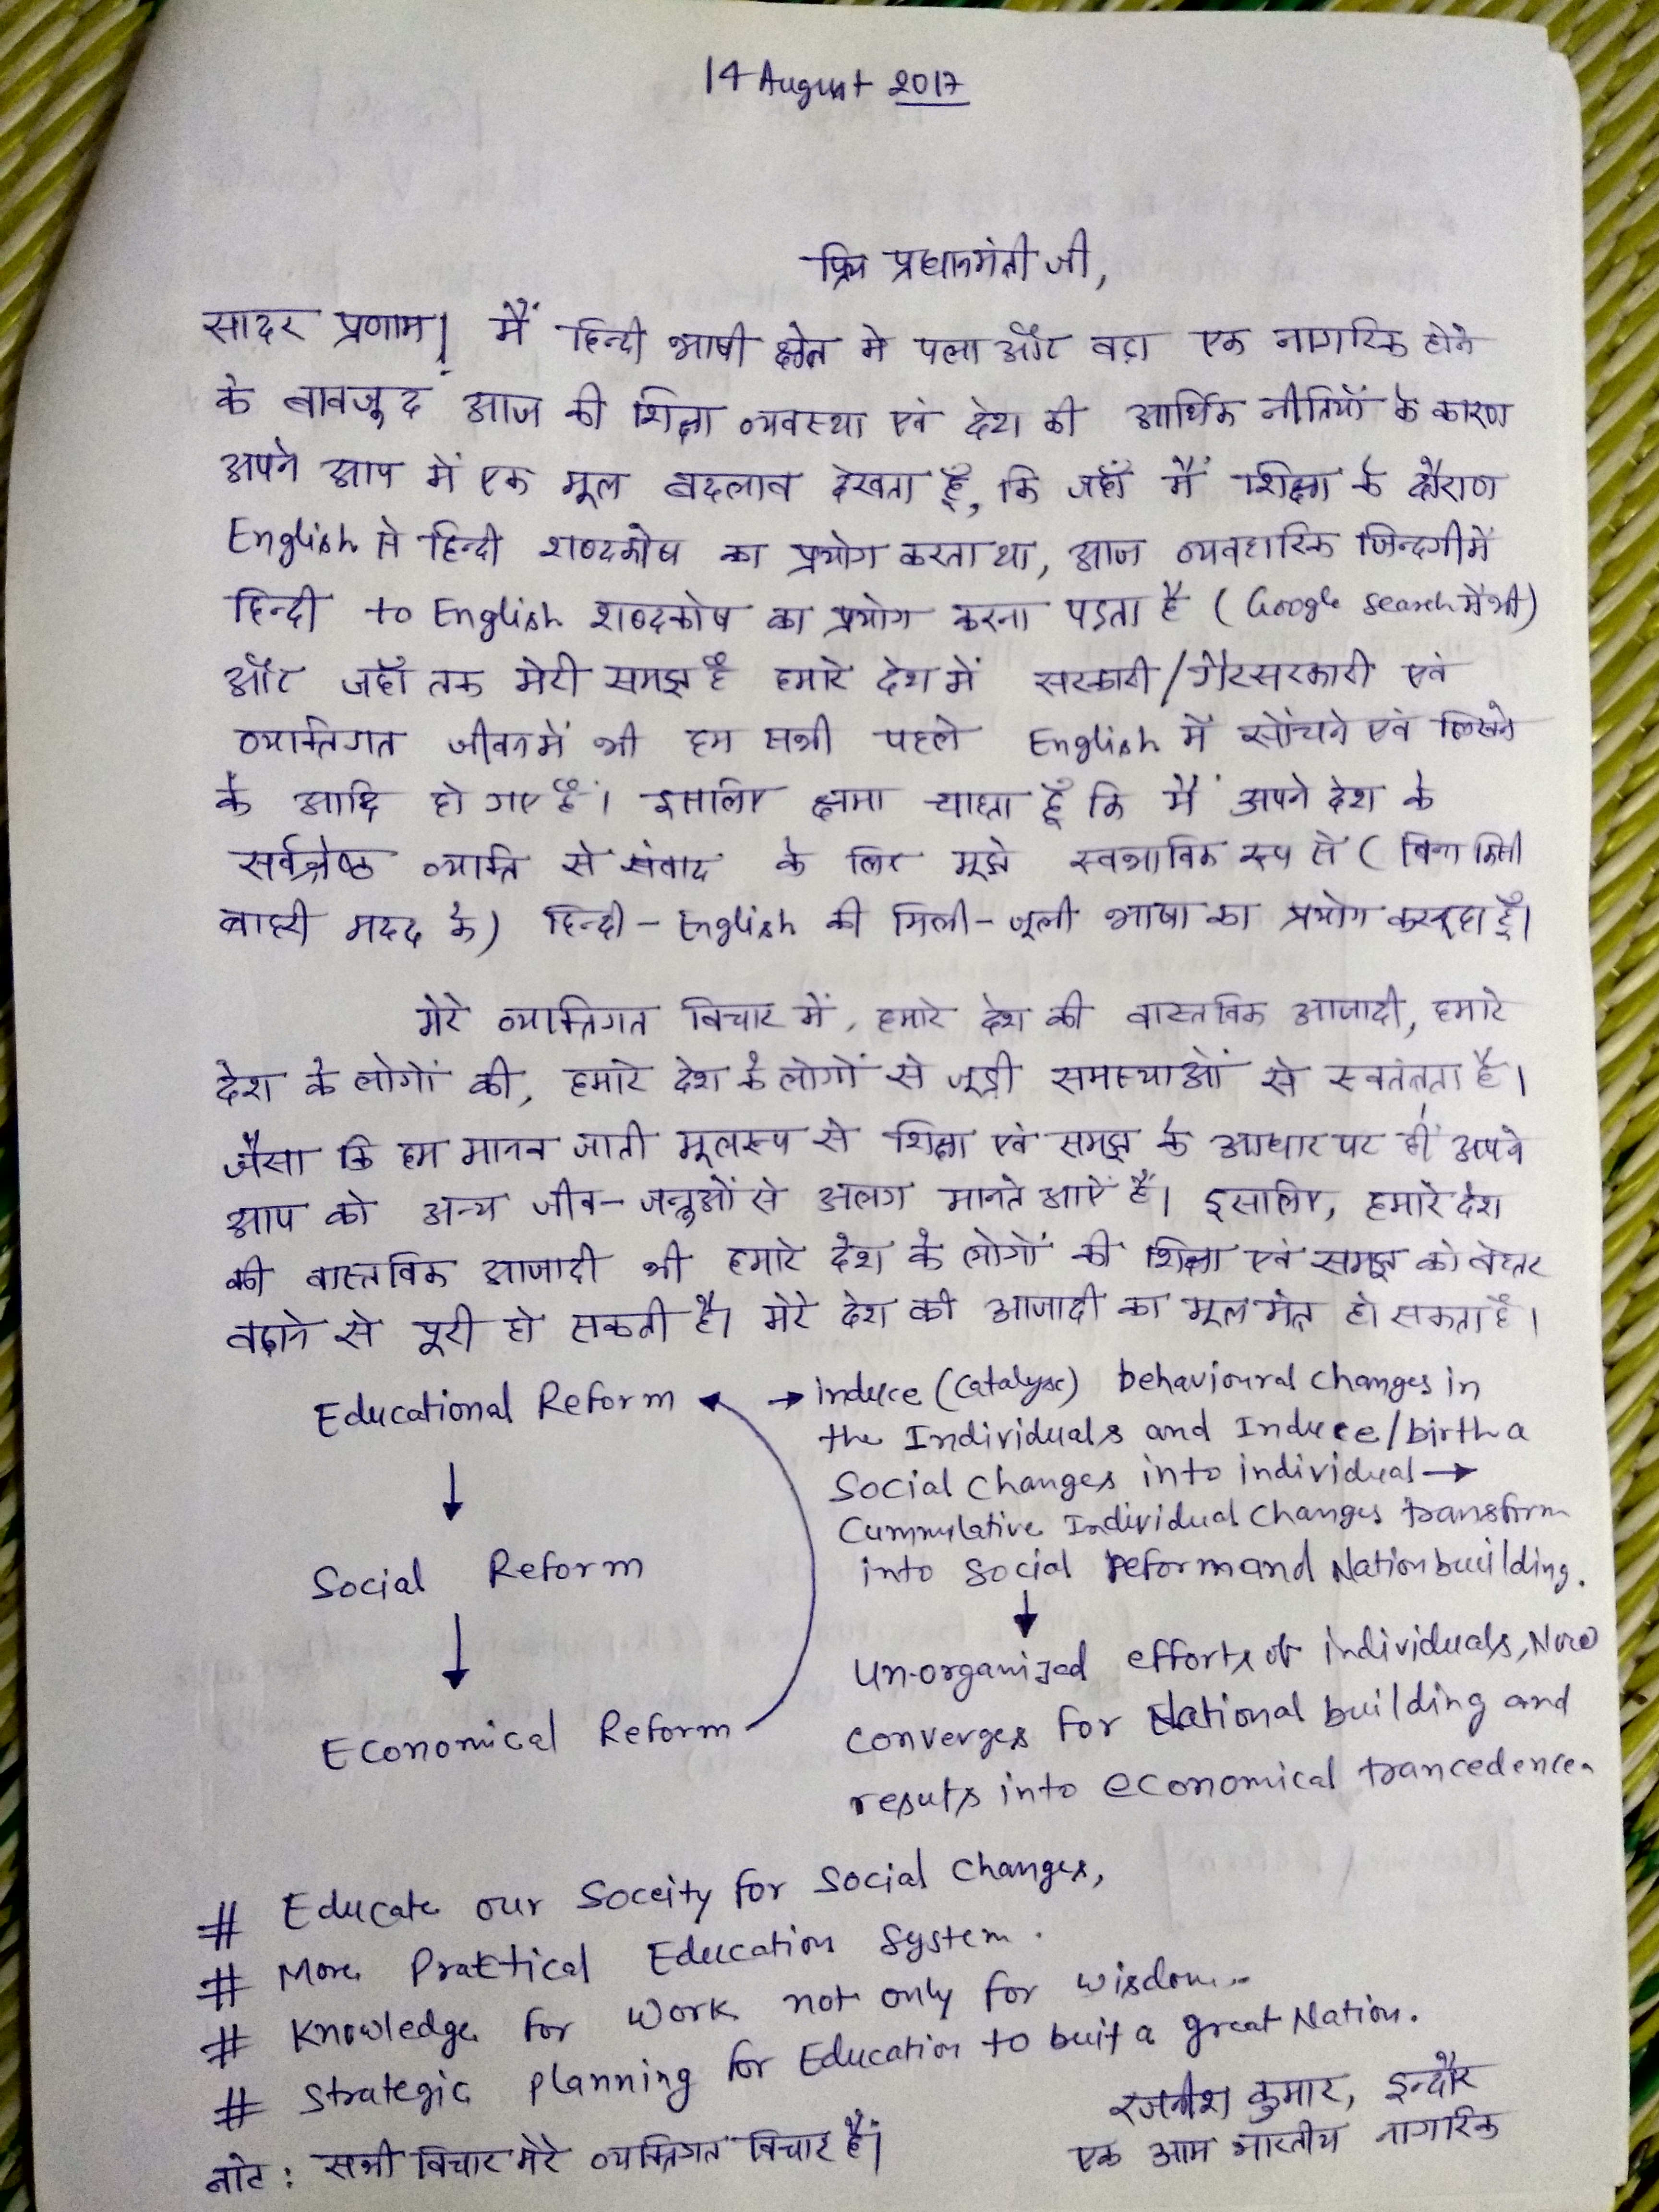 14 August 2017
प्रिय प्रधानमंत्री जी,
सादर प्रणाम! मैं हिन्दी भाषी क्षेत्र मे पला और बढ़ा एक नागरिक होने
के बावजुद आज की शिक्षा व्यवस्था एवं देश की आर्थिक नीतियों के कारण
अपने आप में एक मूल बदलाव देखता हूँ, कि जहाँ मैं शिक्षा के दौराण
English से हिन्दी शब्दकोष का प्रयोग करता था, आज व्यवहारिक जिन्दगी में
हिन्दी to English शब्दकोष का प्रयोग करना पड़ता है (Google search मे भी)
और जहाँ तक मेरी समझ है हमारे देश में सरकारी/गैरसरकारी एवं
व्यक्तिगत जीवन में भी हम सभी पहले English में सोंचने एवं लिखने
के आदि हो गए हैं। इसलिए क्षमा चाहता हूँ कि मैं अपने देश के
सर्वश्रेष्ठ व्यक्ति से संवाद के लिए मूझे स्वभाविक रूप से (बिना किसी
बाहरी मदद के) हिन्दी - English की मिली-जूली भाषा का प्रयोग कर रहा हूँ।
मेरे व्यक्तिगत विचार में, हमारे देश की वास्तविक आजादी, हमारे
देश के लोगों की, हमारे देश के लोगों से जूड़ी समस्याओं से स्वतंत्रता है।
जैसा कि हम मानव जाती मूलरूप से शिक्षा एवं समझ के आधार पर ही अपने
आप को अन्य जीव-जन्तुओं से अलग मानते आऐं हैं। इसलिए, हमारे देश
की वास्तविक आजादी भी हमारे देश के लोगों की शिक्षा एवं समझ को बेहतर
बढ़ाने से पूरी हो सकती है। मेरे देश की आजादी का मूल मंत्र हो सकता है।
Educational Reform → induce (catalyse) behavioural changes in
the Individuals and Induce/birth a
Social Changes into individual →
Cummulative Individual Changes transform
into social reform and Nation building.
↓
Un-organized efforts of individuals, Now
converges for National building and
results into economical trancedence.
↓
Social Reform
↓
Economical Reform
# Educate our Soceity for Social Changes,
# More Practical Education System.
# Knowledge for work not only for wisdom..
# Strategic Planning for Education to buit a great Nation.
रजनीश कुमार, इन्दौर
एक आम भारतीय नागरिक
नोट: सभी विचार मेरे व्यक्तिगत विचार हैं।